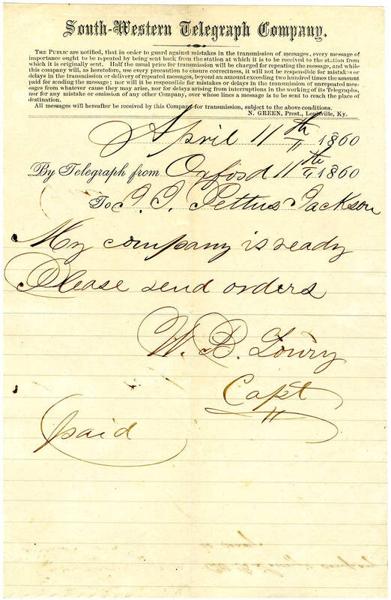 South-Western Telegraph Company.
THE PUBLIC are notified, that in order to guard against mistakes in the transmission of messages, every message of
importance ought to be repeated by being sent back from the station at which it is to be received to the station from
which it is originally sent. Half the usual price for transmission will be charged for repeating the message, and while
this company will, as heretofore, use every precaution to ensure correctness, it will not be responsible for mistakes or
delays in the transmission or delivery of repeated messages, beyond an amount exceeding two hundred times the amount
paid for sending the message; nor will it be responsible for mistakes or delays in the transmission of unrepeated mes-
sages from whatever cause they may arise, nor for delays arising from interruptions in the working of its Telegraphs,
nor for any mistake or omission of any other Company, over whose lines a message is to be sent to reach the place of
destination.
All messages will hereafter be received by this Company for transmission, subject to the above conditions.
N. GREEN, Prest., Louisville, Ky.
April 11th 1860
By Telegraph from Oxford 11th 1860
To J. J. Pettus Jackson
My company is ready
Please send orders
W. B. Lowry
Capt
paid